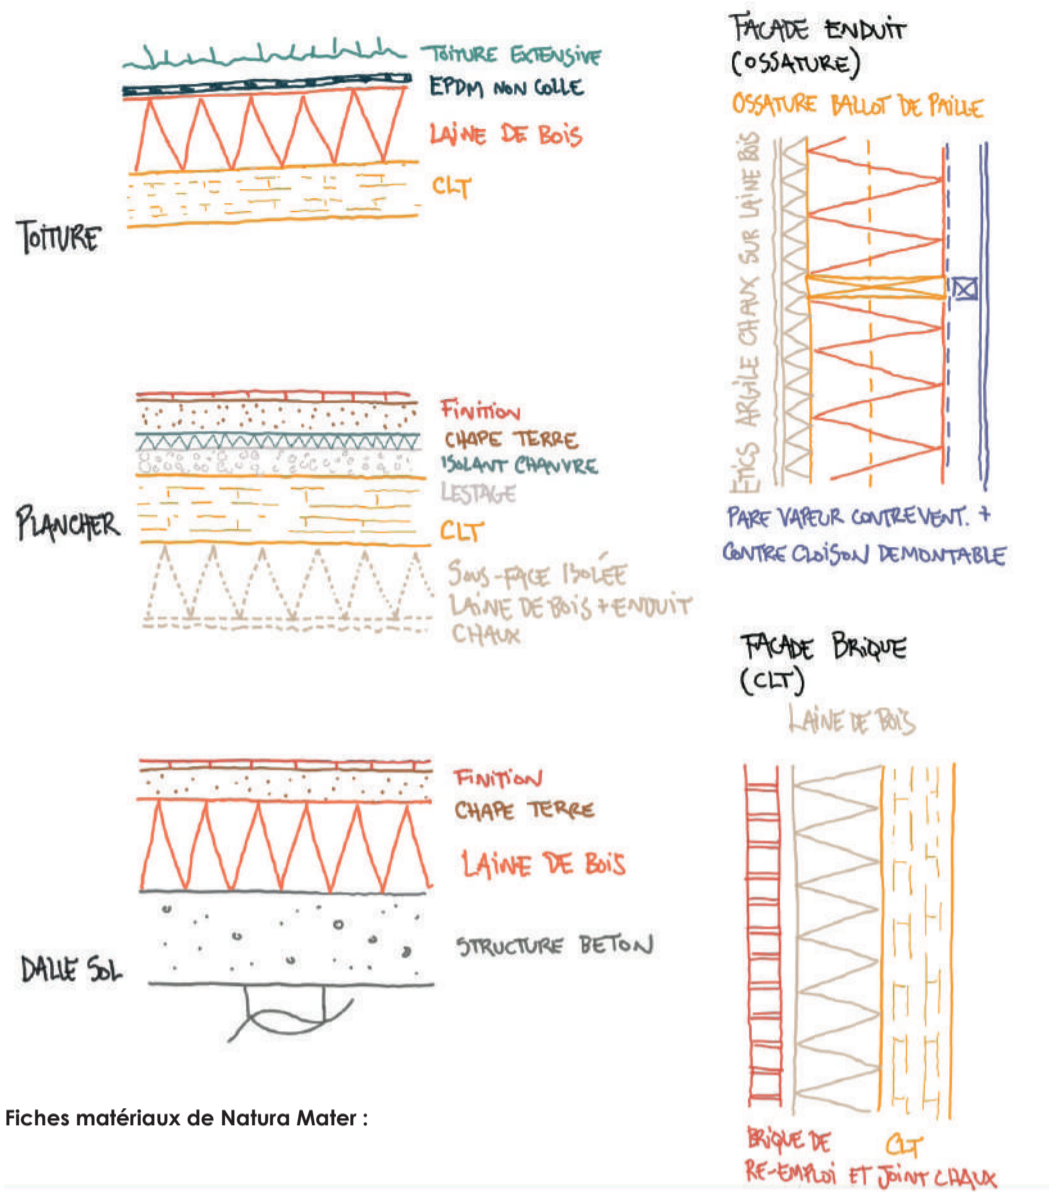 TOITURE EXTENSIVE
EPDM NON COLLE
LAINE DE BOIS
CLT
TOITURE
FINITION
CHAPE TERRE
ISOLANT CHANVRE
LESTAGE
CLT
PLANCHER
SOUS-FACE ISOLÉE
LAINE DE BOIS + ENDUIT
CHAUX
FINITION
CHAPE TERRE
LAINE DE BOIS
STRUCTURE BETON
DALLE SOL
Fiches matériaux de Natura Mater :
FACADE ENDUIT
(OSSATURE)
OSSATURE BALLOT DE PAILLE
ETICS ARGILE CHAUX SUR LAINE BOIS
PARE VAPEUR CONTREVENT. +
CONTRE CLOISON DEMONTABLE
FACADE BRIQUE
(CLT)
LAINE DE BOIS
BRIQUE DE
RE-EMPLOI ET JOINT CHAUX
CLT